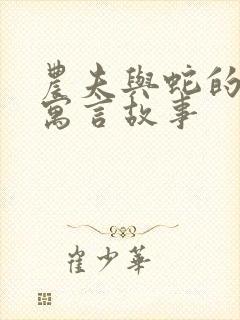 農夫與蛇的
寓言故事
崔少華